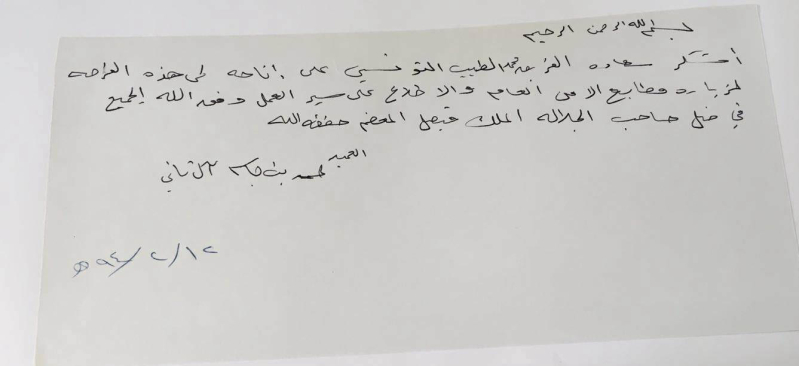 بسم الله الرحمن الرحيم
أشكر سعاده الفريق محمد الطيب التونسي على إتاحه لي هذه الفرصه
لزياره مطابع الامن العام والاطلاع على سير العمل وفق الله الجميع
في ضل صاحب الجلاله الملك فيصل المعضم حفظه الله
العميد
بن جاسم آل ثاني
١٢/٢/٩٤ه